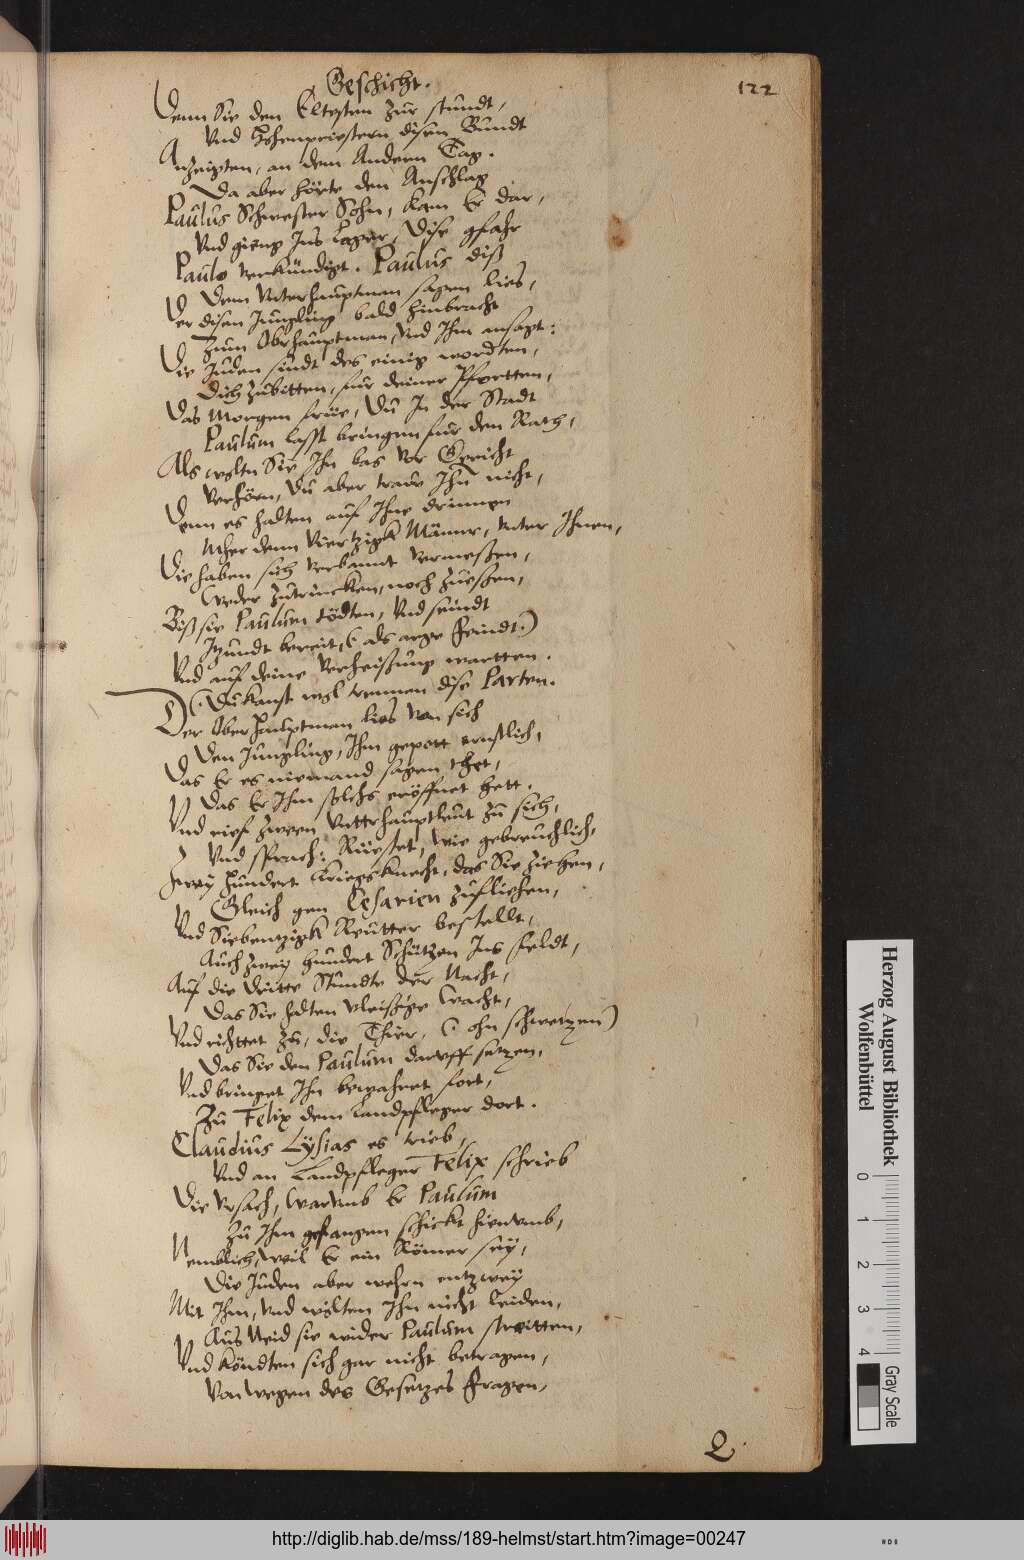 Geschicht.
122
Denn Sie den Eltesten zur stundt,
Vnd Hohenpriestern disen Bundt
Anzeigten, an dem Andern Tag.
Da aber hörte den Anschlag
Paulus Schwester Sohn, kam Er dar,
Vnd gieng Ins Lager, Dise gfahr
Paulo verkündigt. Paulus diß
Dem Vnterhauptman sagen lies,
Der disen Jungling bald hinbracht
Zum Obrhauptman, Vnd Ihm ansagt:
Die Juden sindt des einig wordten,
Dich zubitten, für deiner Pfortten,
Das Morgen frue, Du In der Stadt
Paulum lasst bringen für den Rath,
Als woltn Sie Ihn bas vor Gericht
Verhörn, Du aber traw Ihn nicht,
Denn es halten auf Ihne drinnen
Mher denn Viertzigk Männer, Vnter Ihnen,
Die haben sich verbannt vermeßen,
Weder zutrincken, noch zueßen,
Biß sie Paulum tödten, Vnd seindt
Itzundt bereit, (als arge feindt.)
Vnd auf deine Verheißung wartten.
(Du kanst wol trennen dise Parten.
Der Ober Hauptman lies von sich
Den Jungling, Ihm gepott ernstlich,
Das Er es niemand sagen thet,
Das Er Ihm solchs eröffnet hett.
Vnd rief zween Vntterhauptleut zu sich,
Vnd sprach: Rüestet, wie gebreuchlich,
Zwey Hundert Kriegsknecht, das Sie ziehen,
Gleich gen Cesarien zufliehen,
Vnd Siebentzigk Reutter bestellt,
Auch zwey hundert Schützen Ins feldt,
Auf die dritte Stundte der Nacht,
Das Sie halten vleißige Wacht,
Vnd richttet zu, die Thier, (ohn schwetzen)
Das Sie den Paulum darvff setzen,
Vnd bringet Ihn bewahret fort,
Zu Felix dem Landpfleger dort.
Claudius Lysias es trieb,
Vnd an Landpfleger Felix schrieb
Die Vrsach, Warumb Er Paulum
Zu Ihm gefangen schickt hierumb,
Nemblich, weil Er ein Römer sey,
Die Juden aber wehrn entzwey
Mit Ihm, Vnd wolten Ihn nicht leiden,
Aus Neid sie wider Paulum streitten,
Vnd köndten sich gar nicht betragen,
Von wegen des Gesetzes fragen,
Q
Herzog August Bibliothek
Wolfenbüttel
0 1 2 3 4
Gray Scale
http://diglib.hab.de/mss/189-helmst/start.htm?image=00247